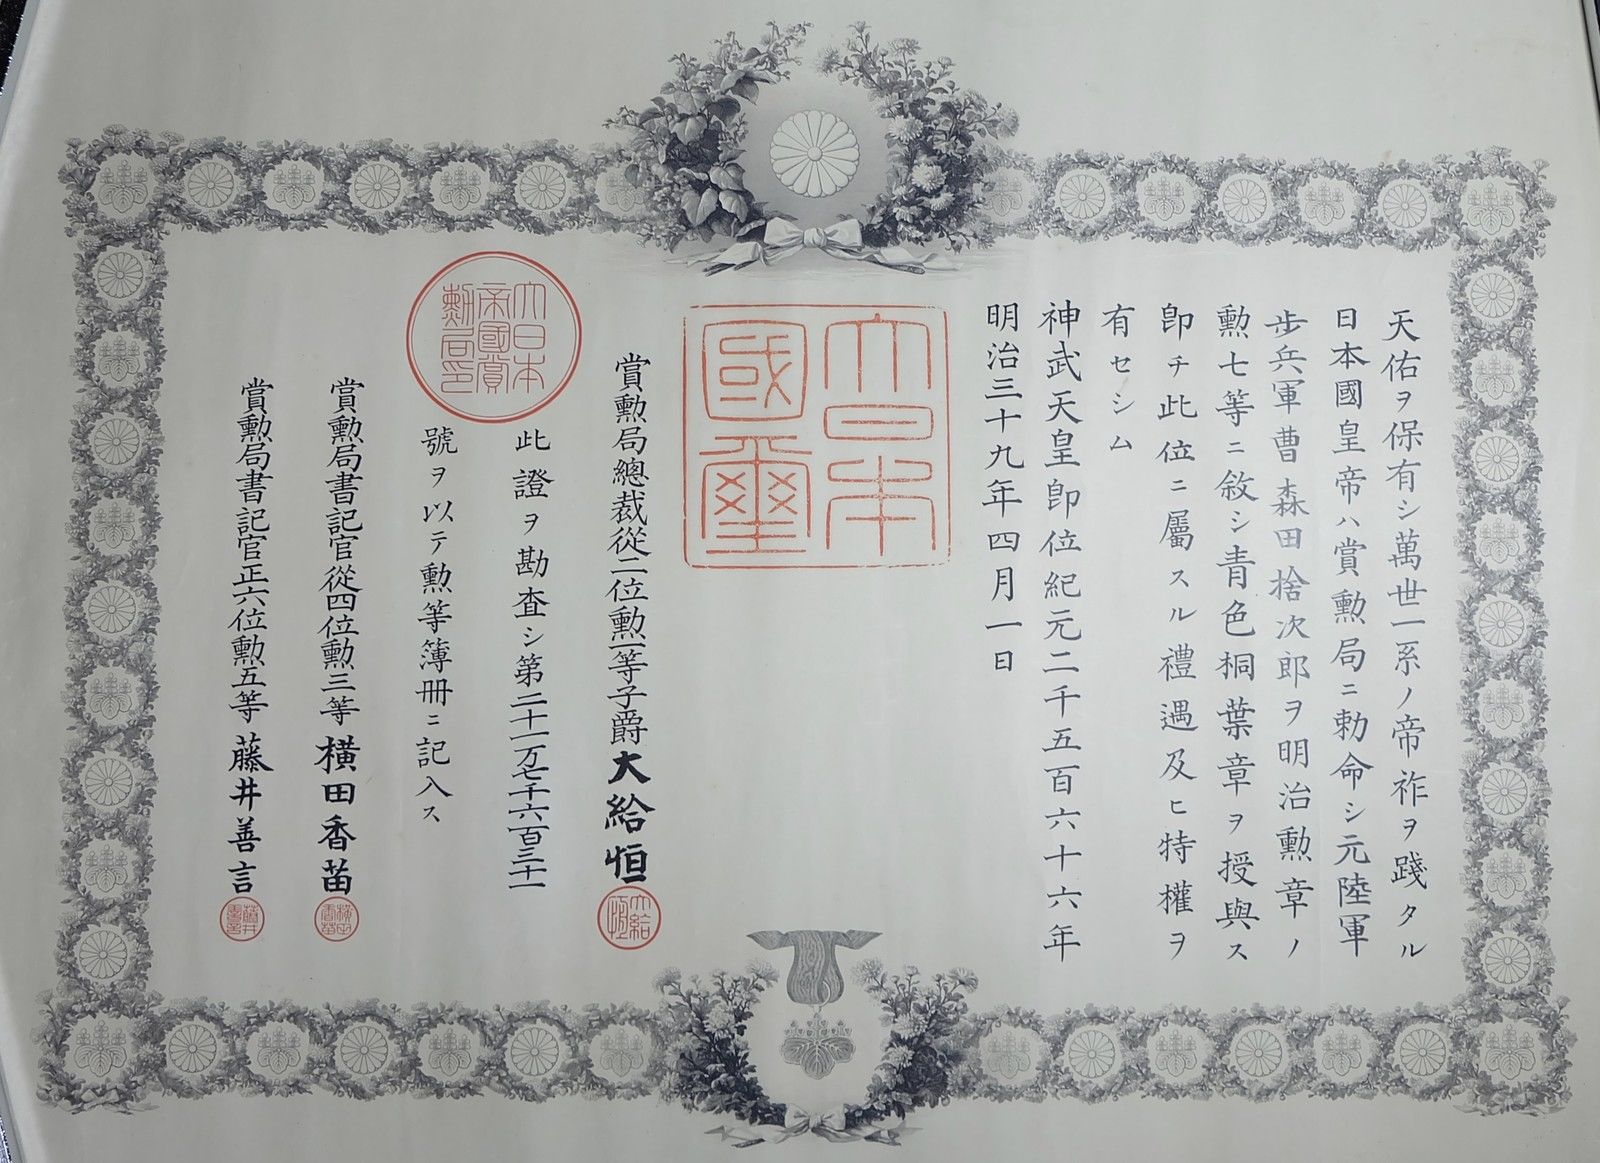 天佑ヲ保有シ萬世一系ノ帝祚ヲ踐タル
日本國皇帝ハ賞勳局ニ勅命シ元陸軍
步兵軍曹森田捨次郎ヲ明治勳章ノ
勳七等ニ敘シ青色桐葉章ヲ授與ス
卽チ此位ニ屬スル禮遇及ヒ特權ヲ
有セシム
神武天皇卽位紀元二千五百六十六年
明治三十九年四月一日
大日本
國璽
賞勳局總裁從二位勳一等子爵大給恒
大給
恒
大日本
帝國賞
勳局印
此證ヲ勘査シ第二十一万七千六百三十一
號ヲ以テ勳等簿冊ニ記入ス
賞勳局書記官從四位勳三等橫田香苗
橫田
香苗
賞勳局書記官正六位勳五等藤井善言
藤井
善言